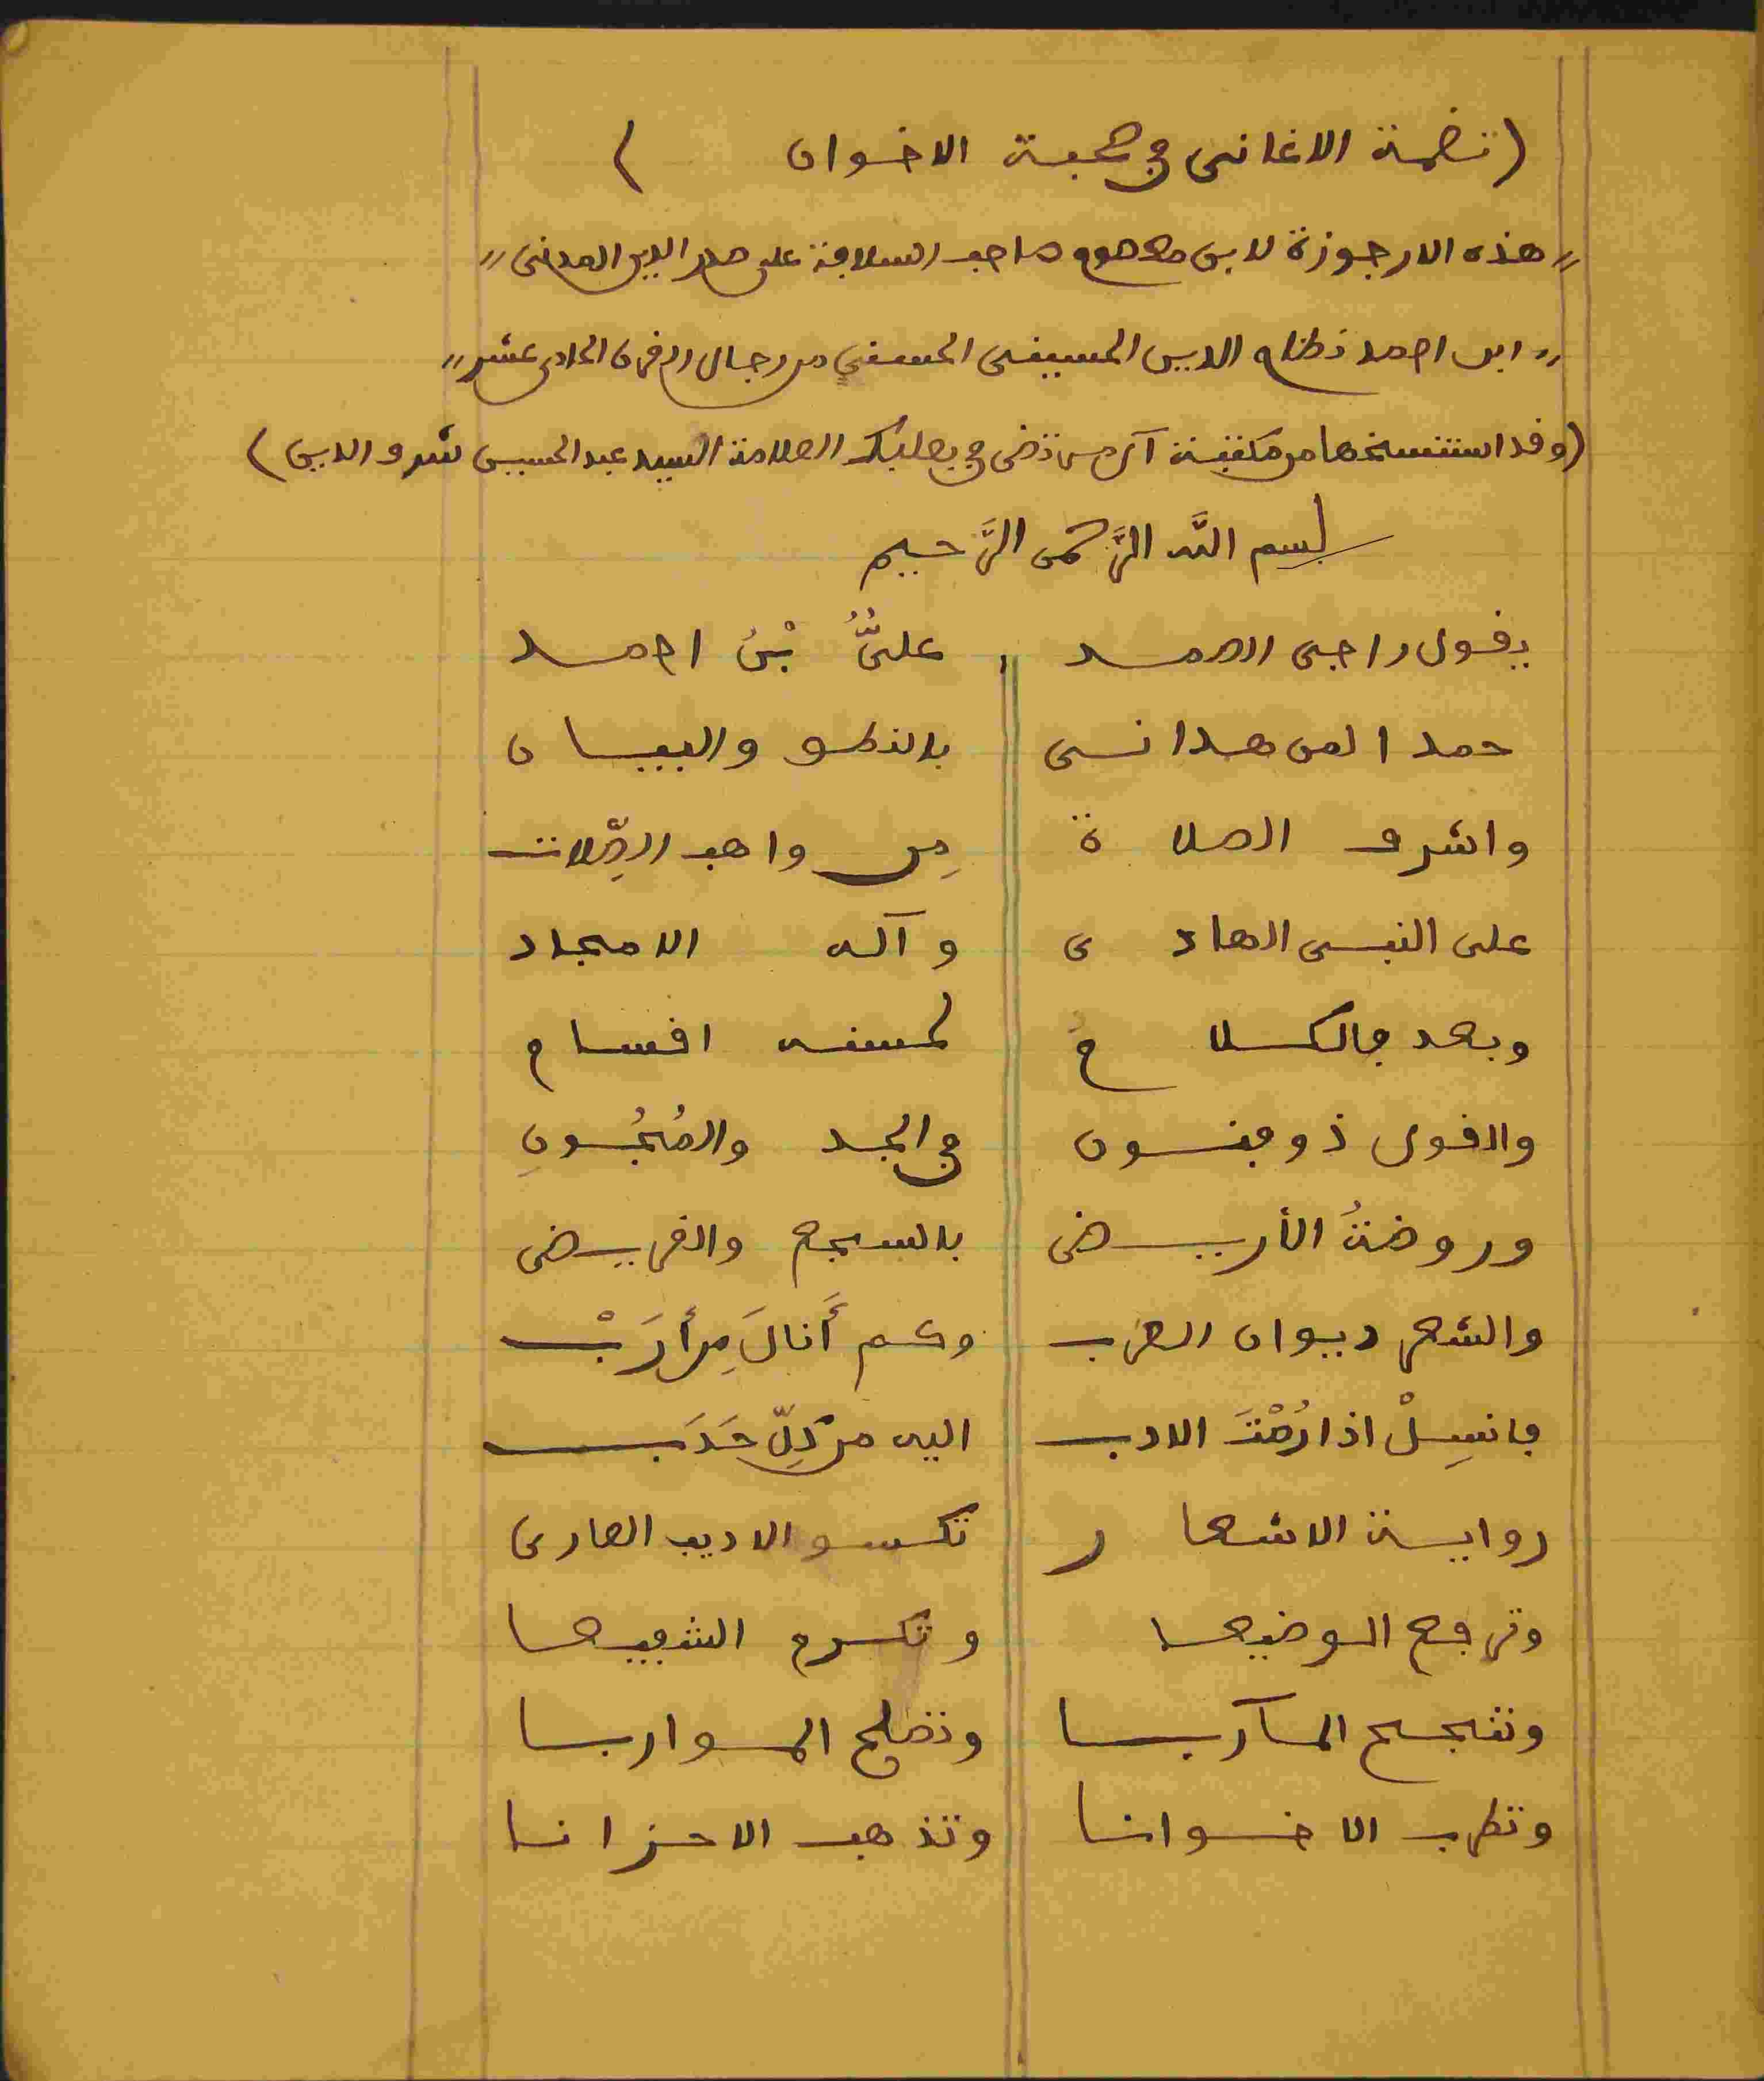 (نغمة الاغانى في صحبة الاخوان)
"هذه الارجوزة لابن معصوم صاحب السلافة على صدر الدين المدنى"
"ابن احمد نظام الدين الحسينى الحسنى من رجال القرن الحادى عشر"
(وقد استنسخها من مكتبة آل مرتضى في بعلبك العلامة السيد عبد الحسين شرف الدين)
بسم الله الرَّحمن الرَّحيم
يقول راجى الصمد علىُّ بْنُ احمد
حمدا لمن هدانى بالنطق والبيان
واشرف الصلاة مِن واهب الصِّلات
على النبى الهادى وآله الامجاد
وبعد فالكلامُ لحسنه اقسام
والقول ذو فنون في الجد والمُجُونِ
وروضةُ الأريض بالسجع والقريض
والشعر ديوان العرب وكم أَنالَ مِن أَرَبْ
فانسِلْ اذا رُمْتَ الادب اليه من كلِّ حَدَب
رواية الاشعار تكسو الاديب العارى
وترفع الوضيعا وتكرم الشفيعا
وتنجح المآربا وتصلح المواربا
وتطرب الاخوانا وتذهب الاحزانا